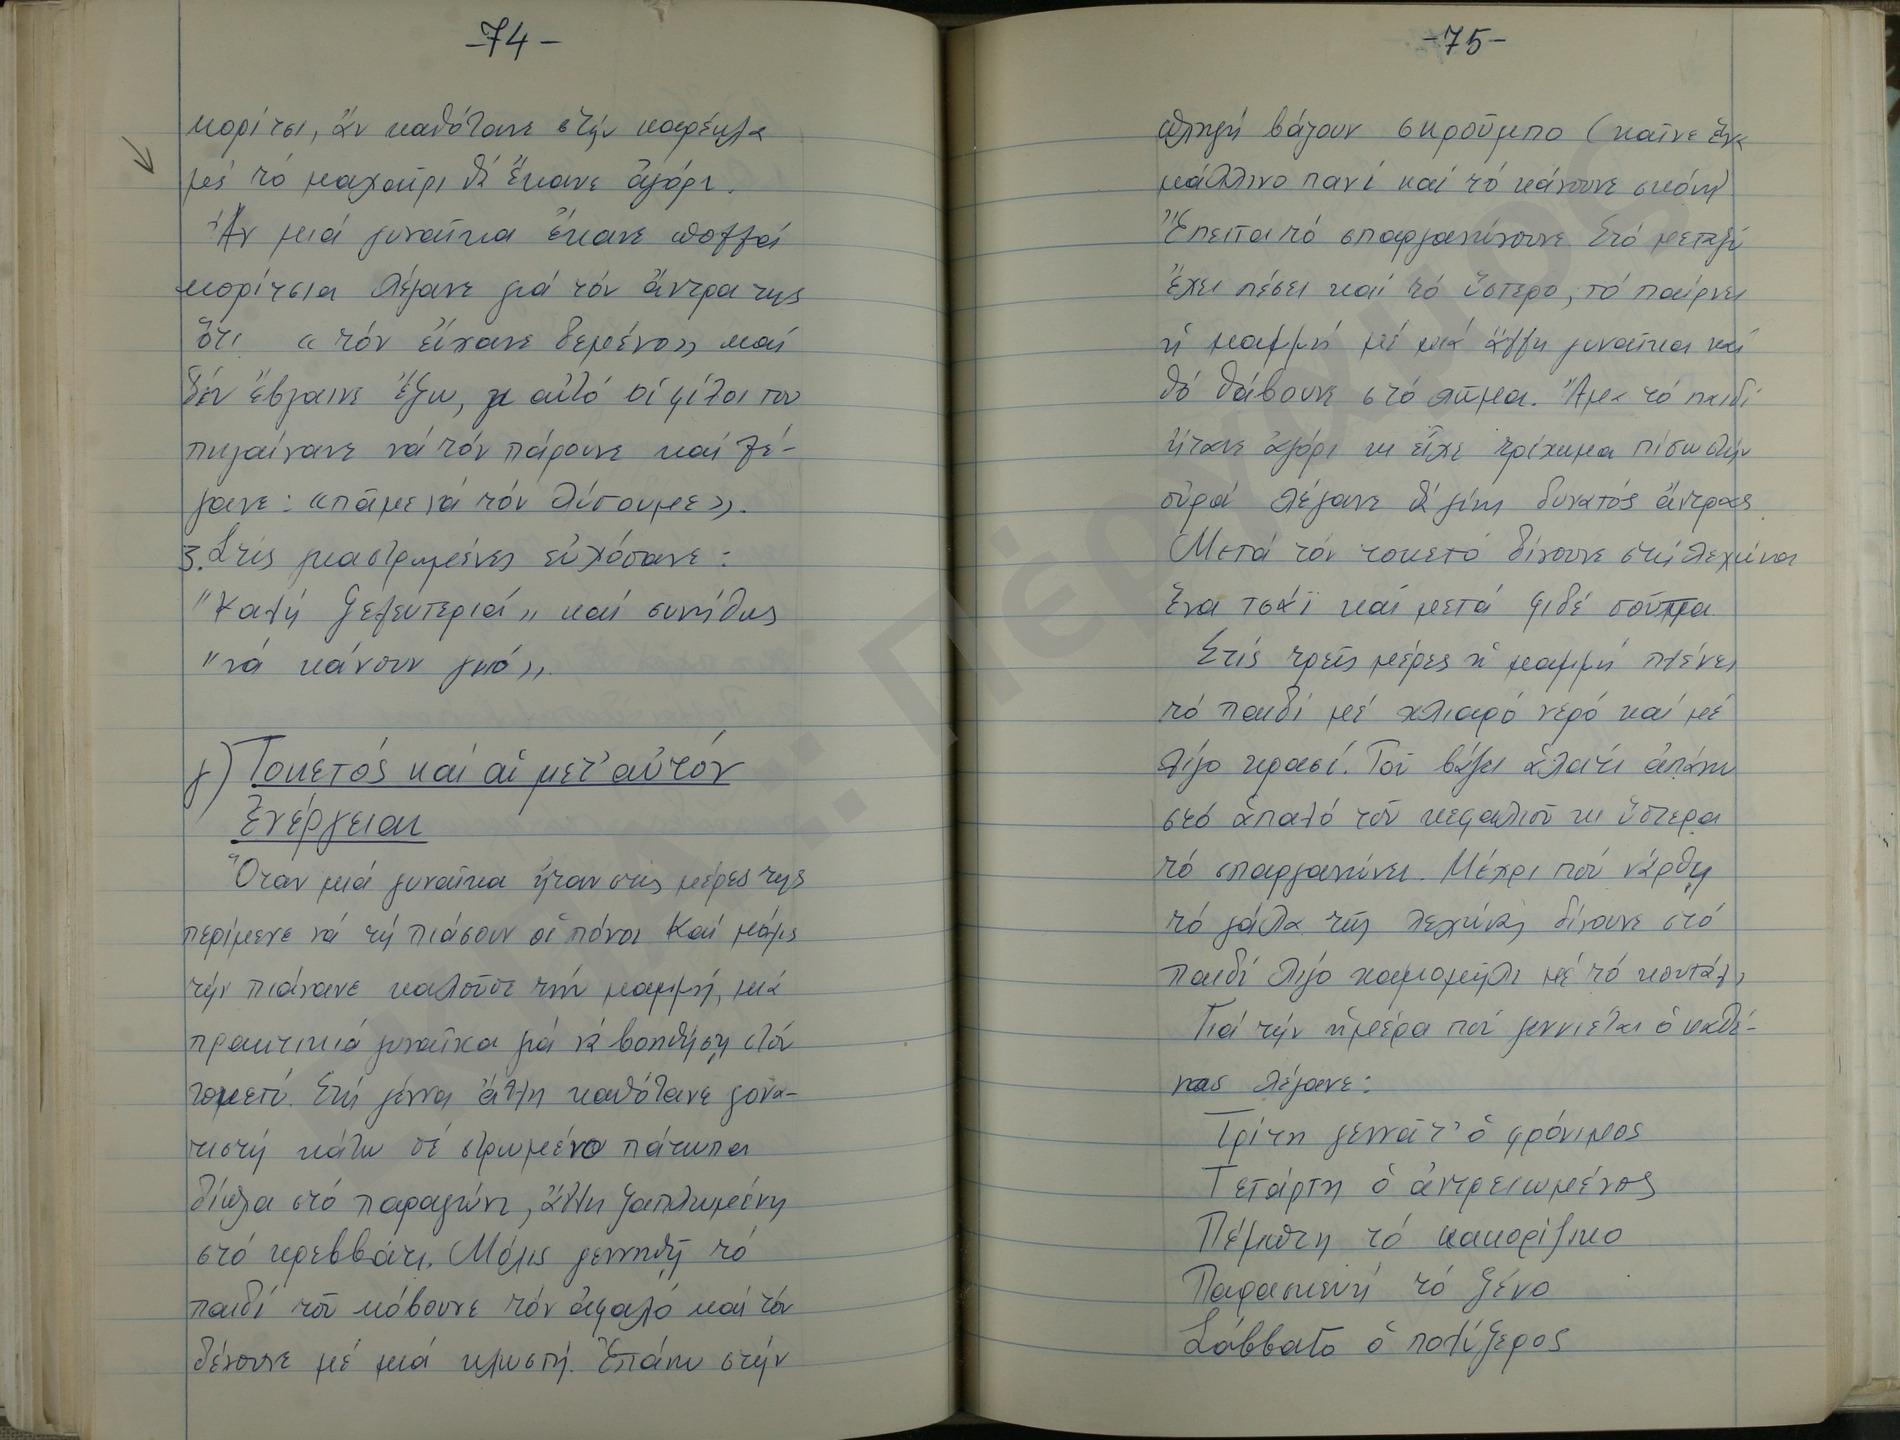 -74-
κορίτσι, ἄν καθότανε στήν καρέκλα
μέ τό μαχαίρι θά ἔκανε ἀγόρι.
Ἄν μιά γυναῖκα ἔκανε πολλά
κορίτσια λέγανε γιά τόν ἄντρα της
ὅτι "τόν εἴχανε δεμένο" καί
δέν ἔβγαινε ἔξω, γι αὐτό οἱ φίλοι του
πηγαίνανε νά τόν πάρουνε καί λέ-
γανε: «πᾶμε νά τόν λύσουμε».
3. Στίς γκαστρωμένες εὐχόσανε:
"καλή ξελευτεριά" καί συνήθως
"νά κάνουν γυιό".
γ) Τοκετός καί αἱ μετ' αὐτόν
ἐνέργειαι
Ὅταν μιά γυναῖκα ἦταν στίς μέρες της
περίμενε νά τή πιάσουν οἱ πόνοι καί μόλις
τήν πιάνανε καλοῦσε τήν μαμμή, μιά
πρακτικιά γυναῖκα γιά νά βοηθήση στόν
τοκετό. Στή γέννα ἄλλη καθότανε γονα-
τιστή κάτω σέ στρωμένο πάτωμα
δίπλα στό παραγώνι, ἄλλη ξαπλωμένη
στό κρεββάτι. Μόλις γεννηθῇ τό
παιδί τοῦ κόβουνε τόν ἀφαλό καί τόν
δένουνε μέ μιά κλωστή. Ἐπάνω στήν
-75-
πληγή βάζουν σκροῦμπο (καῖνε ἕνα
μάλλινο πανί καί τό κάνουνε σκόνη)
Ἔπειτα τό σπαργανώνουνε. Στό μεταξύ
ἔχει πέσει καί τό ὕστερο, τό παίρνει
ἡ μαμμή μέ μιά ἄλλη γυναῖκα καί
θά θάβουνε στό λῦμα. Ἄμα τό παιδί
ἤτανε ἀγόρι κι εἶχε τρίχωμα πίσω στήν
οὐρά λέγανε θά γίνη δυνατός ἄντρας
Μετά τόν τοκετό δίνουνε στή λεχώνα
ἕνα τσάϊ καί μετά φιδέ σούπα.
Στίς τρεῖς μέρες ἡ μαμμή πλένει
τό παιδί μέ χλιαρό νερό καί μέ
λίγο κρασί. Τοῦ βάζει ἁλάτι ἀπάνω
στό ἁπαλό τοῦ κεφαλιοῦ κι ὕστερα
τό σπαργανώνει. Μέχρι πού νάρθη
τό γάλα τῆς λεχώνας δίνουνε στό
παιδί λίγο χαμομήλι μέ τό κουτάλι
Γιά τήν ἡμέρα πού γεννιέται ὁ καθέ-
νας λέγανε:
Τρίτη γεννᾶτ' ὁ φρόνιμος
Τετάρτη ὁ ἀντρειωμένος
Πέμπτη τό κακορίζικο
Παρασκευή τό ξένο
Σάββατο ὁ πολύξερος